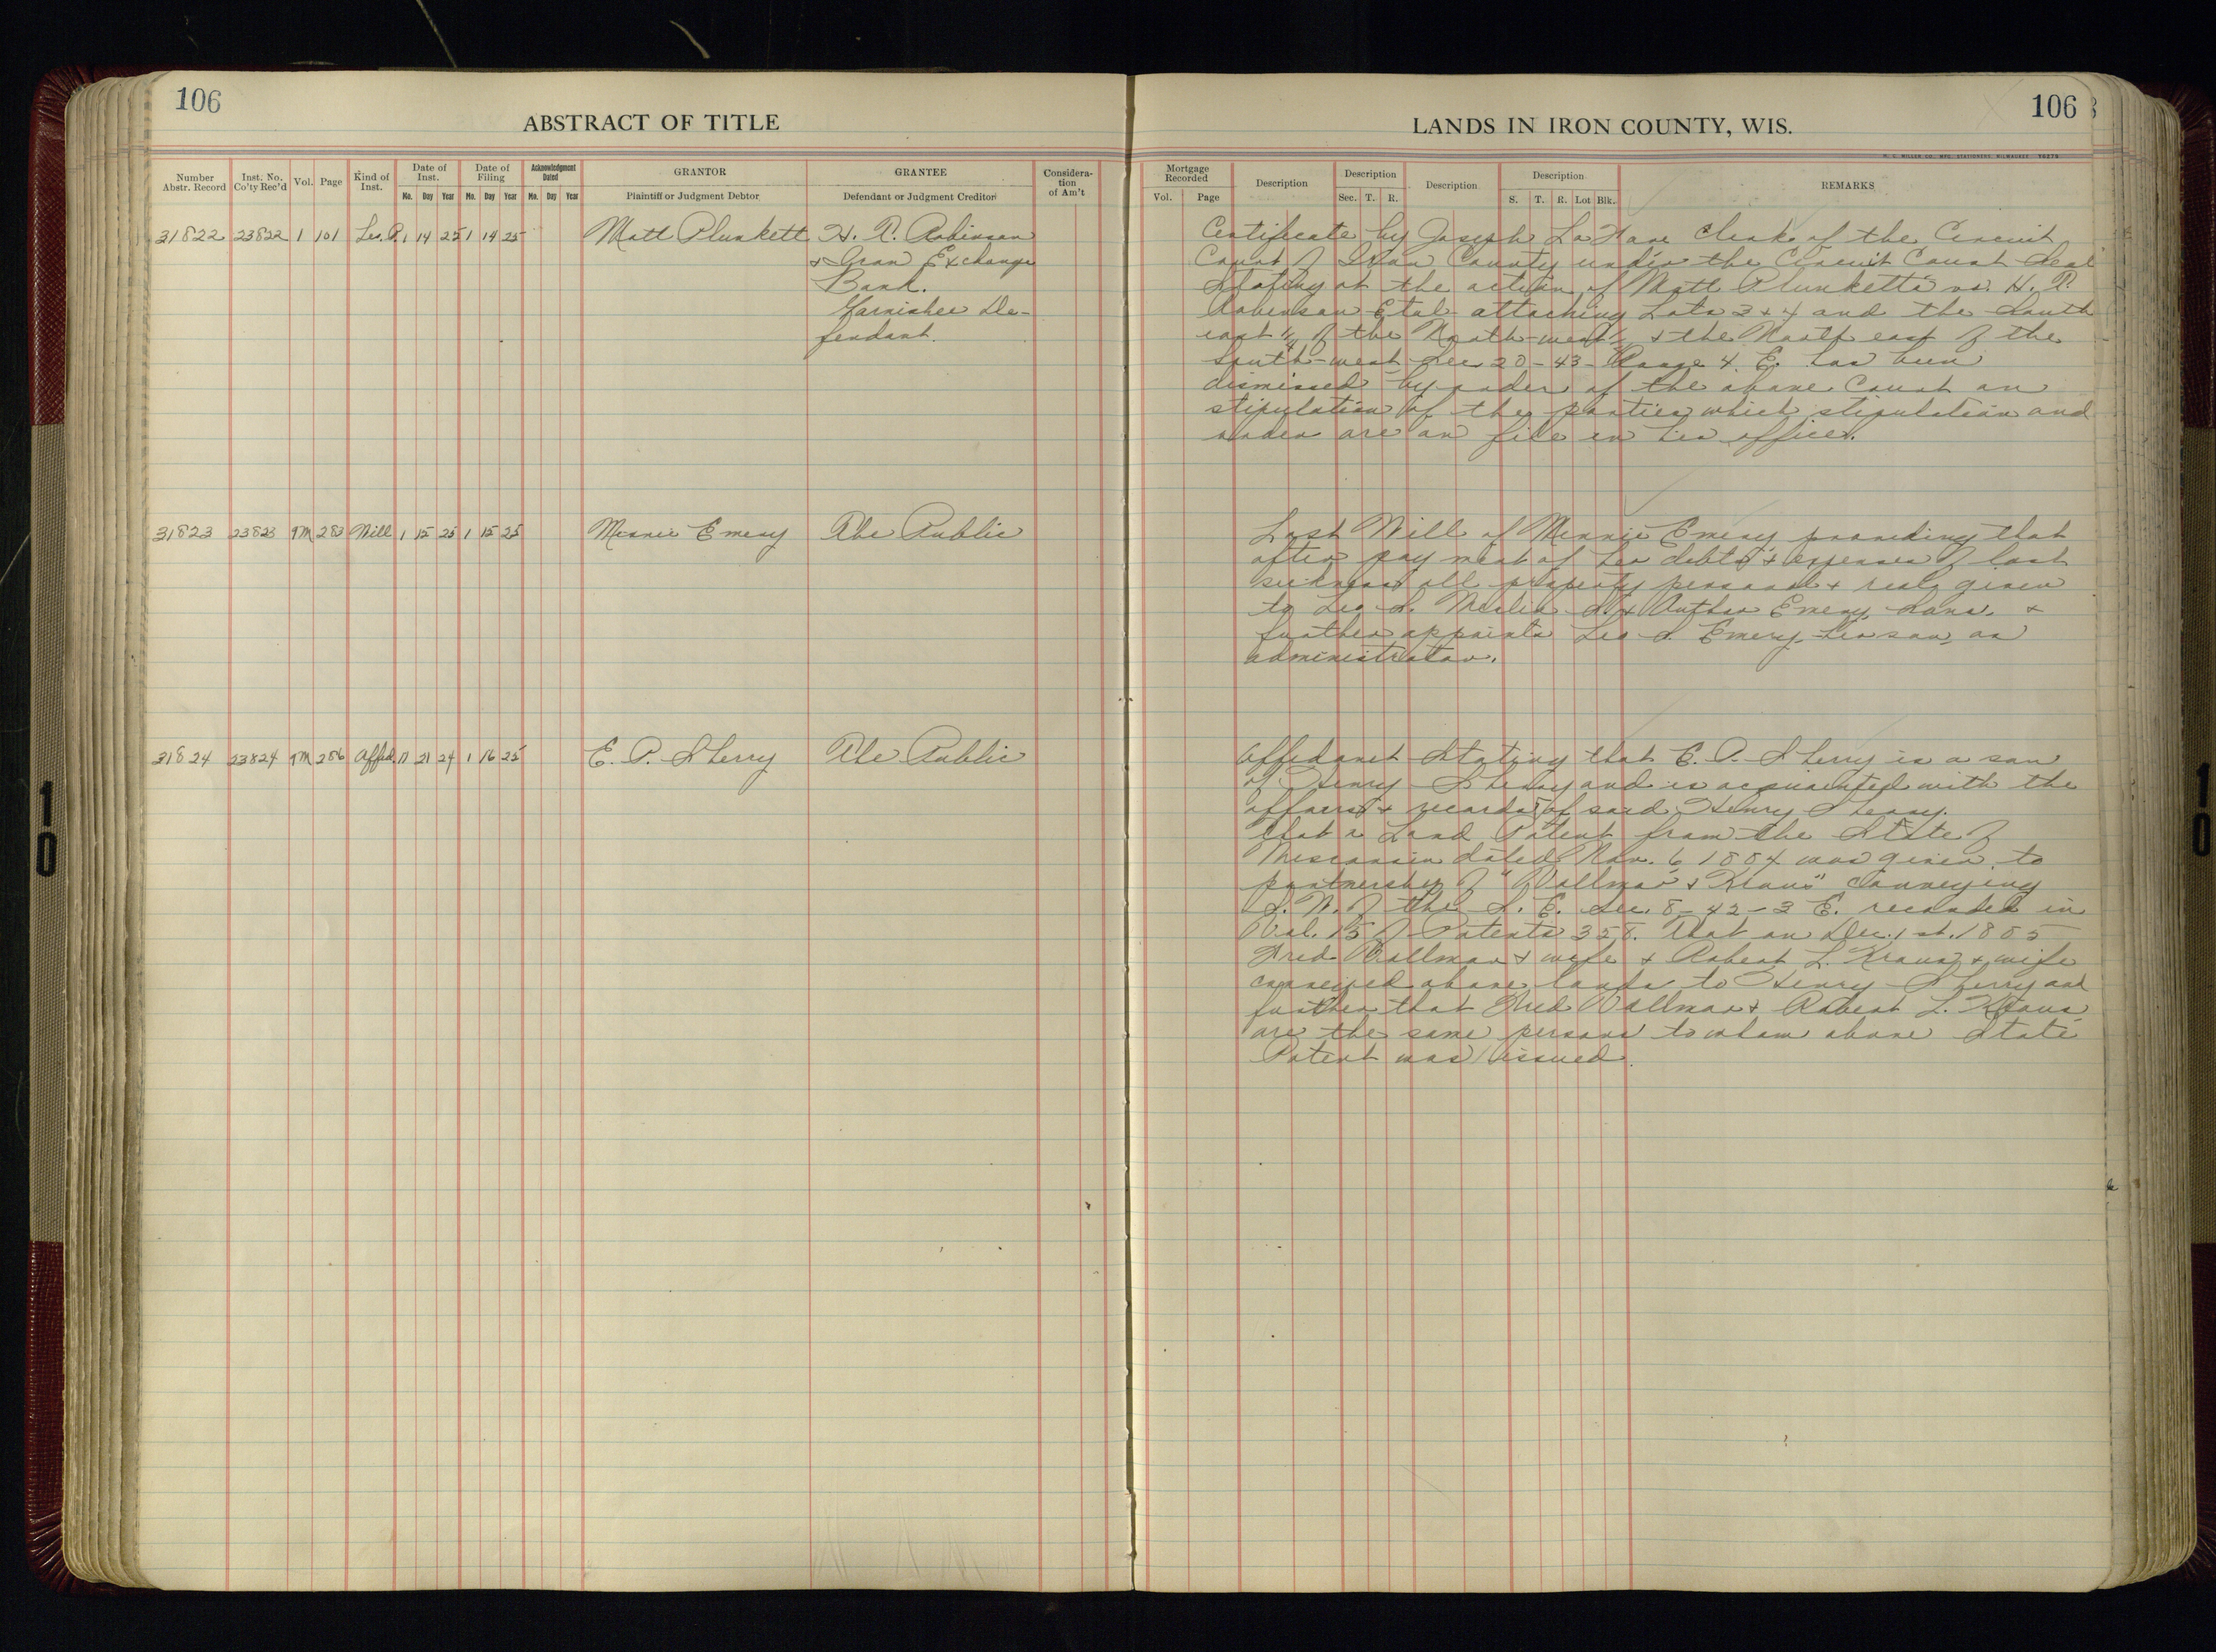 106
ABSTRACT OF TITLE
Number Abstr. Record
Inst. No. Co'ty Rec'd
Vol.
Page
Kind of Inst.
Date of Inst.
Date of Filing
Acknowledgment Dated
GRANTOR
GRANTEE
Considera-tion of Am't
Mo. Day Year Mo. Day Year Mo. Day Year
Plaintiff or Judgment Debtor
Defendant or Judgment Creditor
31822 23822 1 101 Lis. P. 1 14 25 1 14 25 Matt Plunkett H. R. Robinson
& Iron Exchange
Bank.
Garnishee De-
fendant.
31823 23823 9M 283 Will 1 15 25 1 15 25 Minnie Emery The Public
31824 23824 9M 286 Affid. 11 21 24 1 16 25 E. P. Sherry The Public
LANDS IN IRON COUNTY, WIS.
106
H. C. MILLER CO. MFG. STATIONERS MILWAUKEE
Mortgage Recorded
Vol. Page
Description
Description
Sec. T. R.
Description
Description
S. T. R. Lot Blk.
REMARKS
Certificate by Joseph Clerk of the Circuit
Court of Iron County under the Circuit Court Seal
Stating at the action of Matt Plunketts vs. H. R.
Robinson Etal attaching Lots 3 & 4 and the South
east ¼ of the North-west ¼ & the North east of the
South-west Sec 20-43-Range 4. E. has been
dismissed by order of the above Court on
stipulation of the parties which stipulation and
order are on file in his office.
Last Will of Minnie Emery providing that
after payment of her debts & expenses of last
sickness all property personal & real given
to Leo S. S. & Arthur Emery Sons, &
further appoints Leo S. Emery her son, as
administrator.
Affidavit Stating that E. P. Sherry is a son
of Henry Sherry and is acquainted with the
affairs & records of said Henry Sherry.
That a Land Patent from the State of
Wisconsin dated Nov. 6 1884 was given to
partnership of "Vollmar & Kraus" conveying
S. W. of the S. E. Sec. 8-42-3 E. recorded in
Vol. 15 of Patents 358. That on Dec. 1st. 1885
Fred Vollmar & wife & Robert L. Kraus & wife
conveyed above lands to Henry Sherry and
further that Fred Vollmar & Robert L. Kraus
are the same persons to whom above State
Patent was issued.
10
10